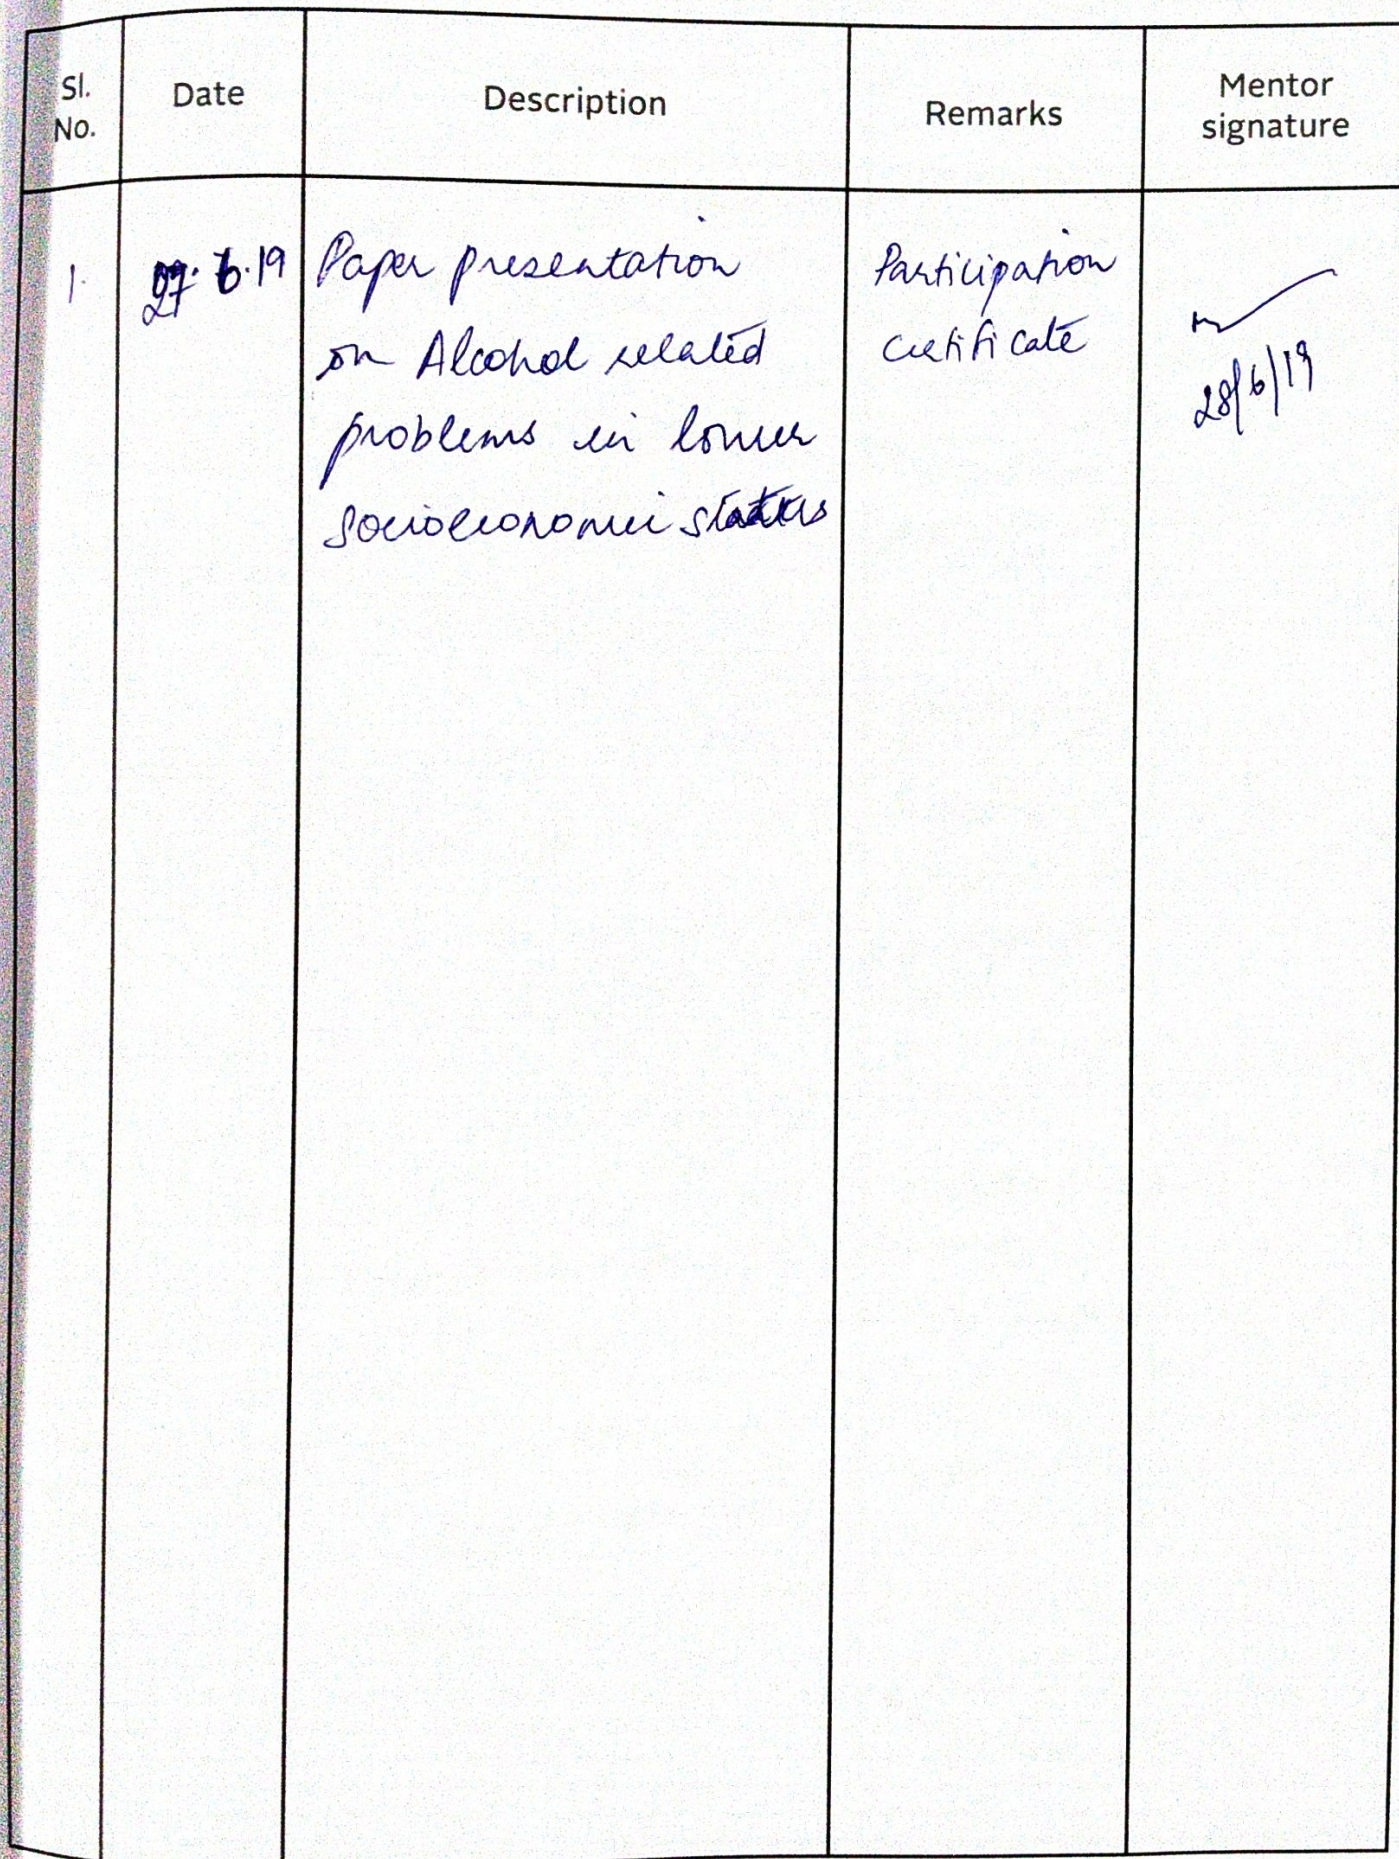 Sl. No.
Date
Description
Remarks
Mentor signature
1.
27.6.19
Paper presentation
on Alcohol related
problems in lower
socioeconomic status
Participation
certificate
28/6/19